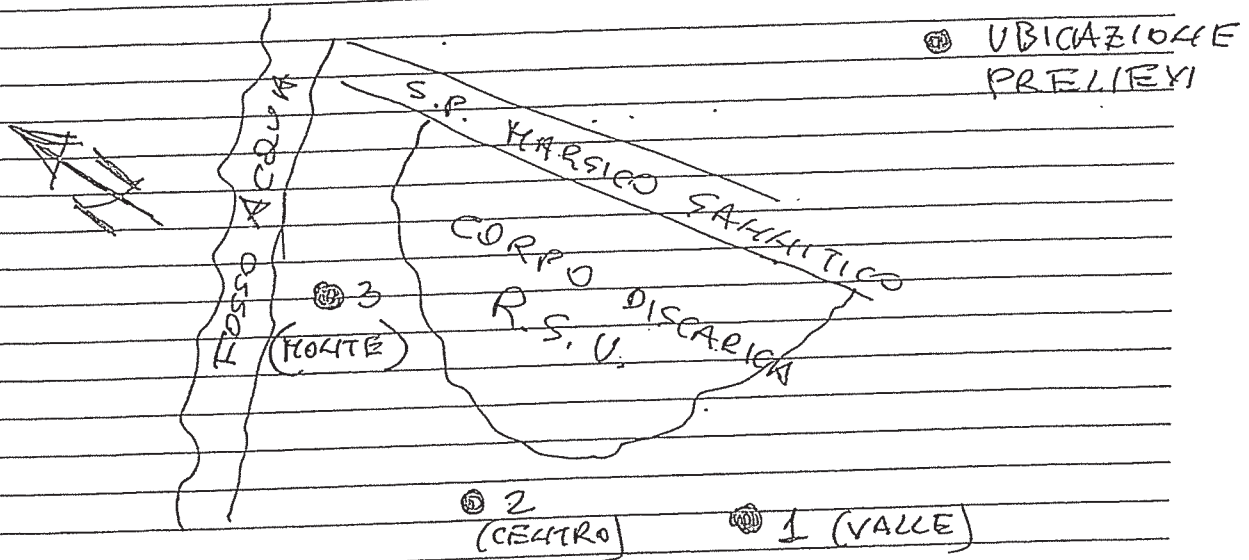 UBICAZIONE
PRELIEVI
FOSSO ACQUA
S.P. MARSICO SANNITICO
CORPO DISCARICA
R.S.U.
3
(MONTE)
2
(CENTRO)
1 (VALLE)